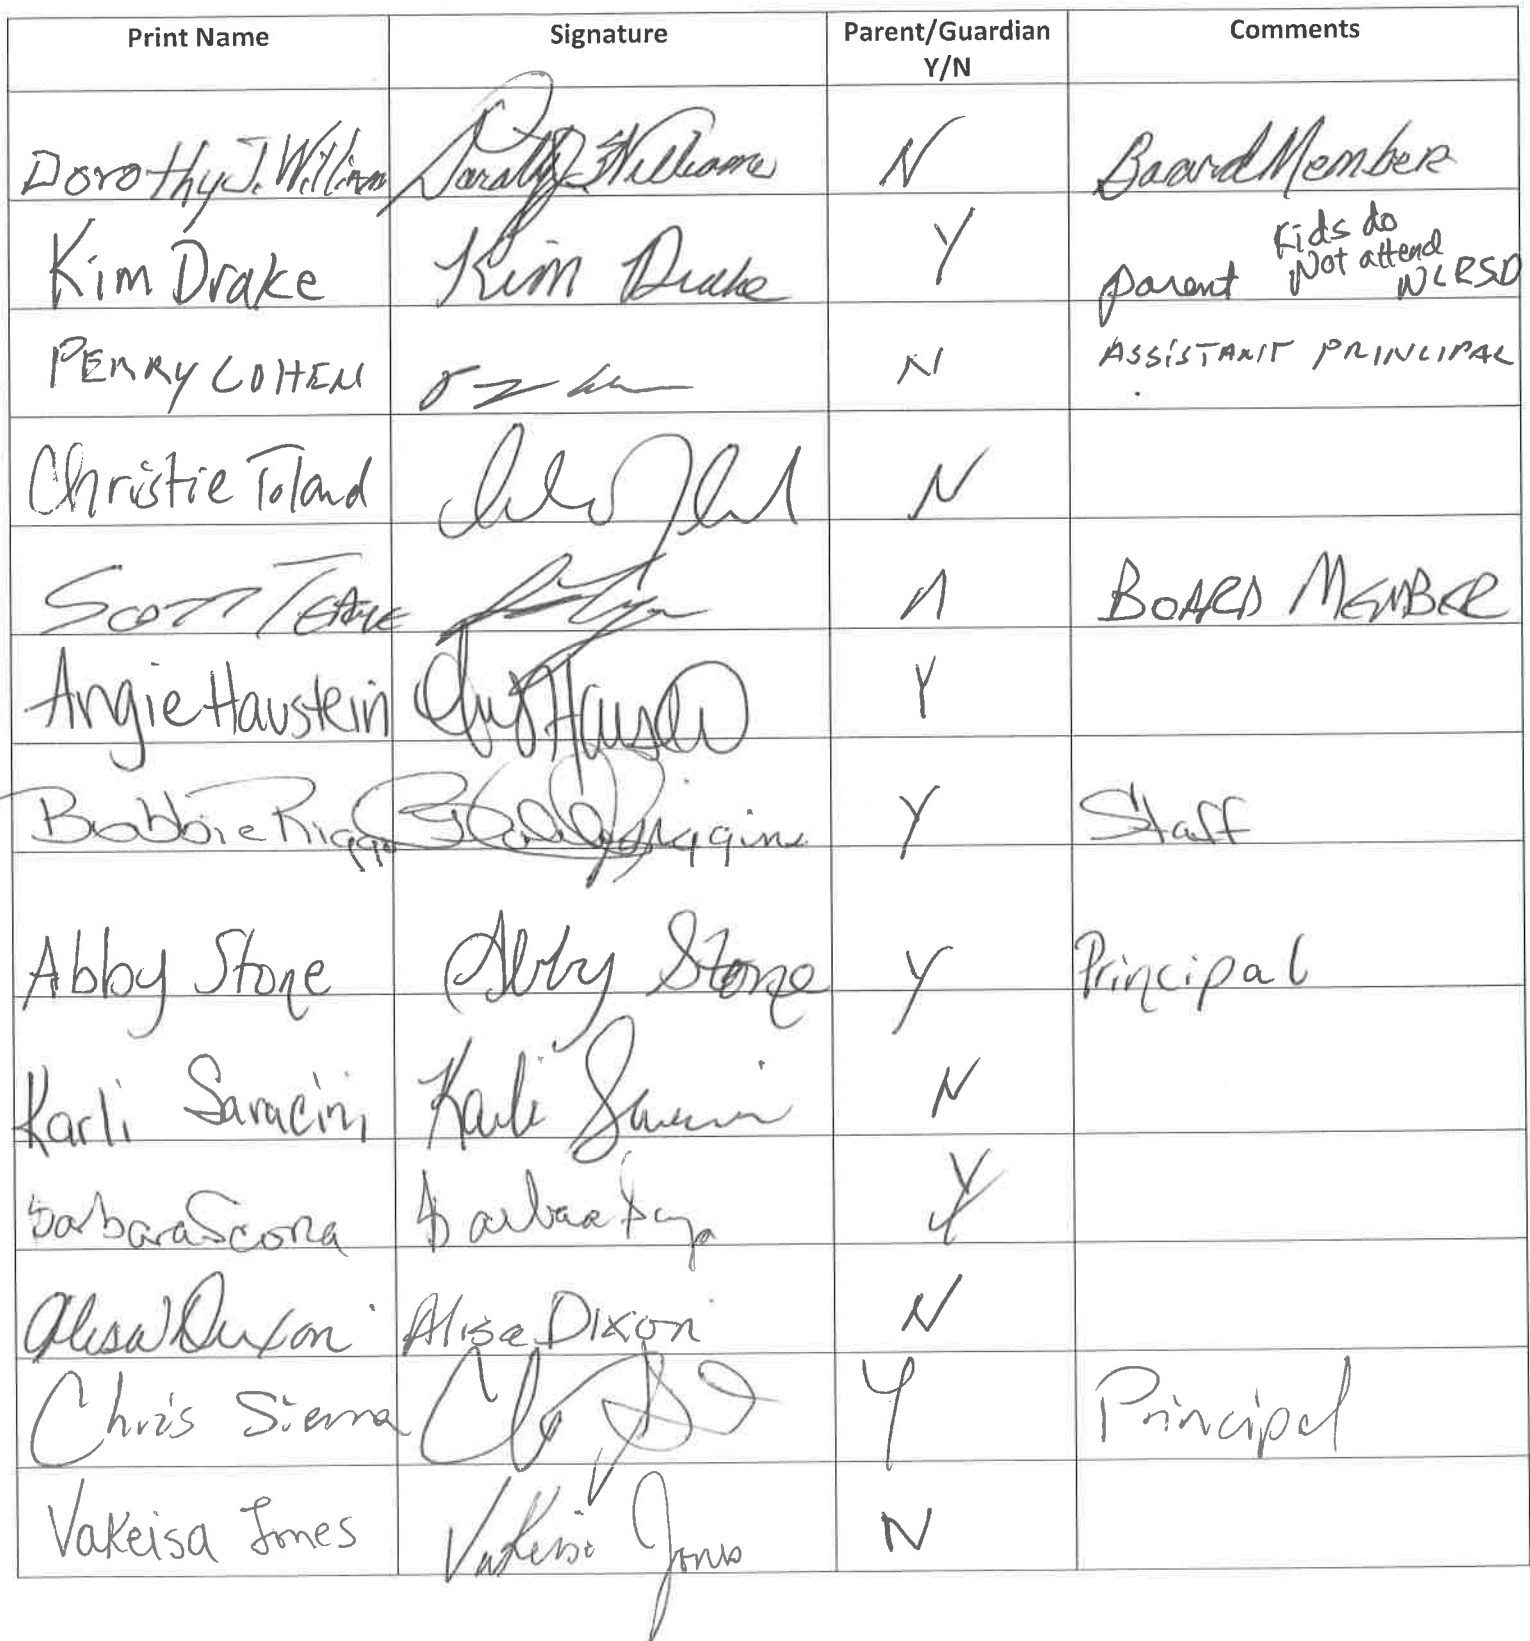 Print Name Signature Parent/Guardian Comments
Y/N
Dorothy J. William Dorothy J Williams N Board Member
Kim Drake Kim Drake Y parent Kids do
Not attend
NLRSD
PERRY COHEN N ASSISTANT PRINCIPAL
Christie Toland N
SCOTT TEAGUE N BOARD MEMBER
Angie Haustein Y
Bobbie Riggins Riggins Y Staff
Abby Stone Abby Stone Y Principal
Karli Saracini Karli Saracini N
barbara Barbara Y
Alisa Dixon Alisa Dixon N
Chris Sierra Y Principal
Vakeisa Jones Vakeisa Jones N